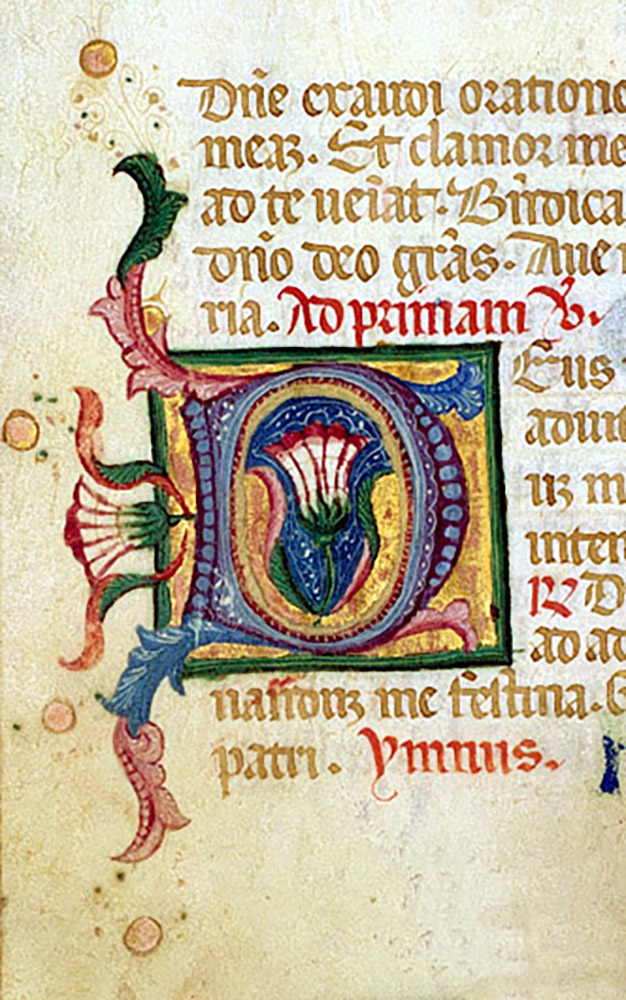 Dñe exaudi oratione
meaʒ. Et clamor me
ad te ueiat. Bñdica
dño deo gr̃as. Aue
ria. Ad primam ℣.
DEus
adiut
uʒ m
inten
℟ D
ad ad
iuuandum me festina. G
patri. Ymnus.